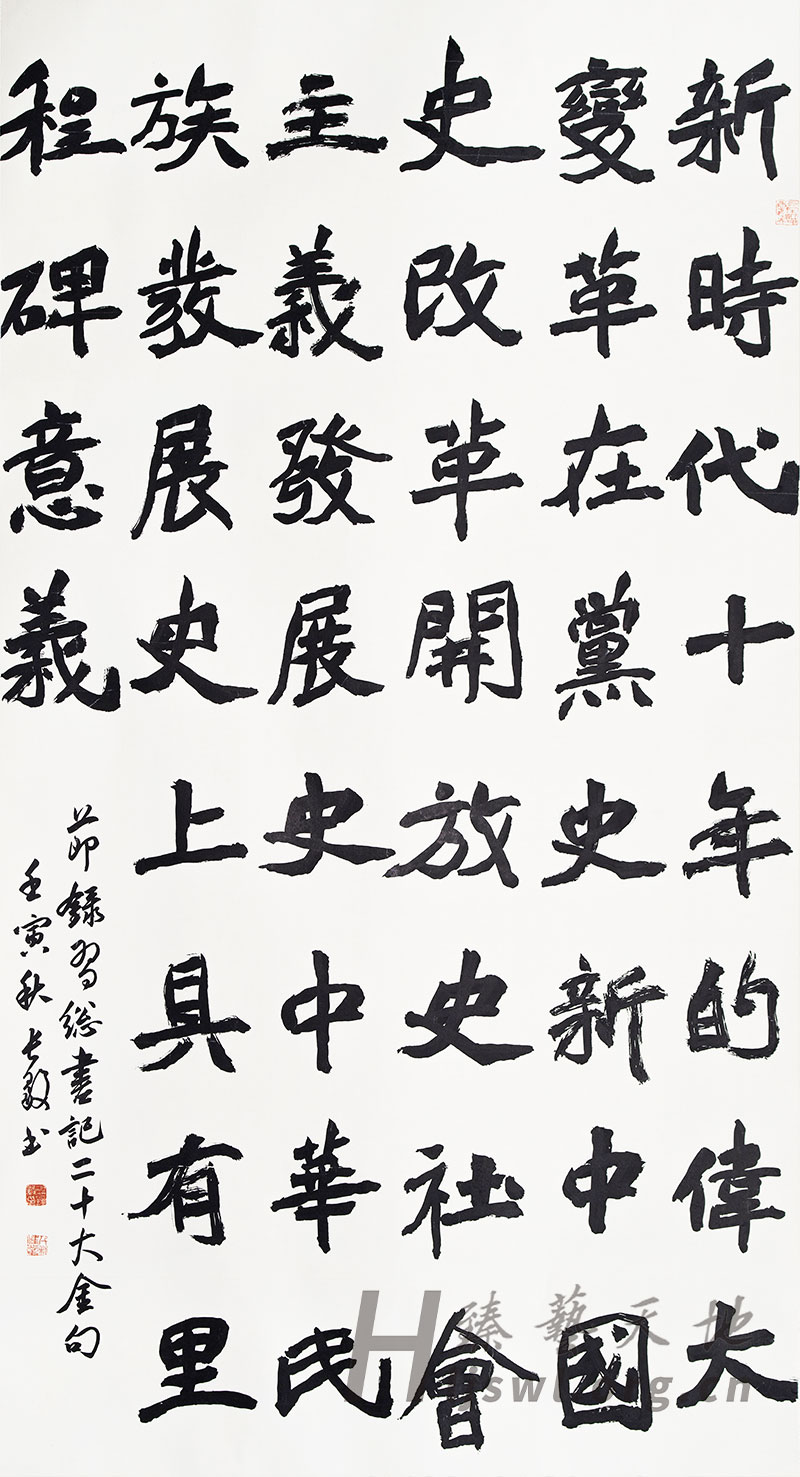 新時代十年的偉大
變革在黨史新中國
史改革開放史社會
主義發展史中華民
族發展史上具有里
程碑意義
節錄習總書記二十大金句
壬寅秋长毅书
臻藝天地